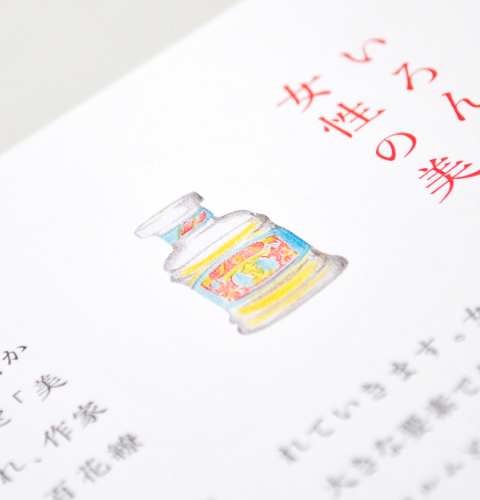 いろん
女性の美
か
「美
れ、作家
百花繚
れていきます。
大きな要素で